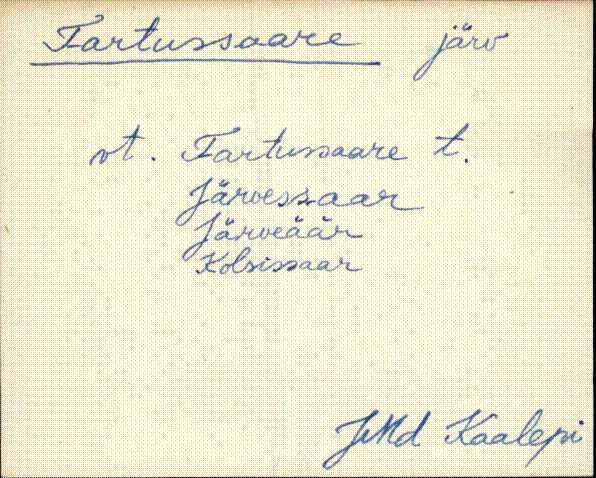 Tartussaare järv
vt. Tartussaare t.
Järvessaar
Järveäär
Kolsissaar
JMd Kaalepi